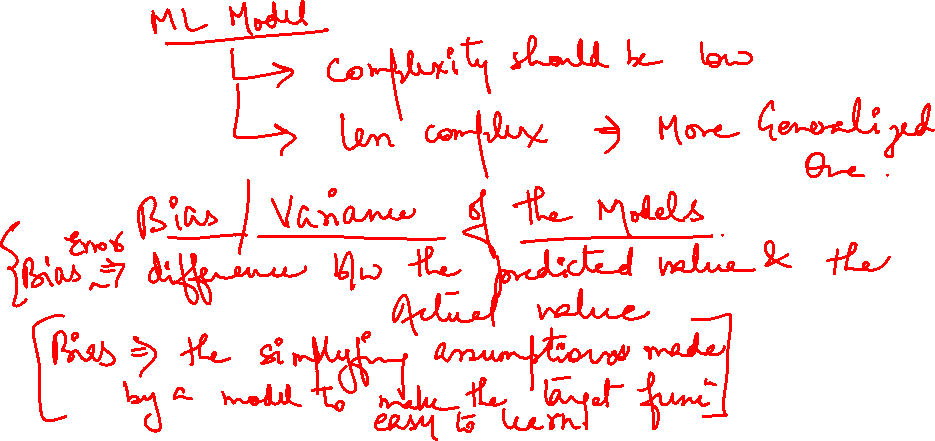 ML Model
→ complexity should be low
→ less complex ⇒ More Generalized
One.
Bias / Variance of the Models
{Bias Error ⇒ difference b/w the predicted value & the
Actual value
[Bias ⇒ the simplyfing assumptions made
by a model to make the target func]
easy to learn.